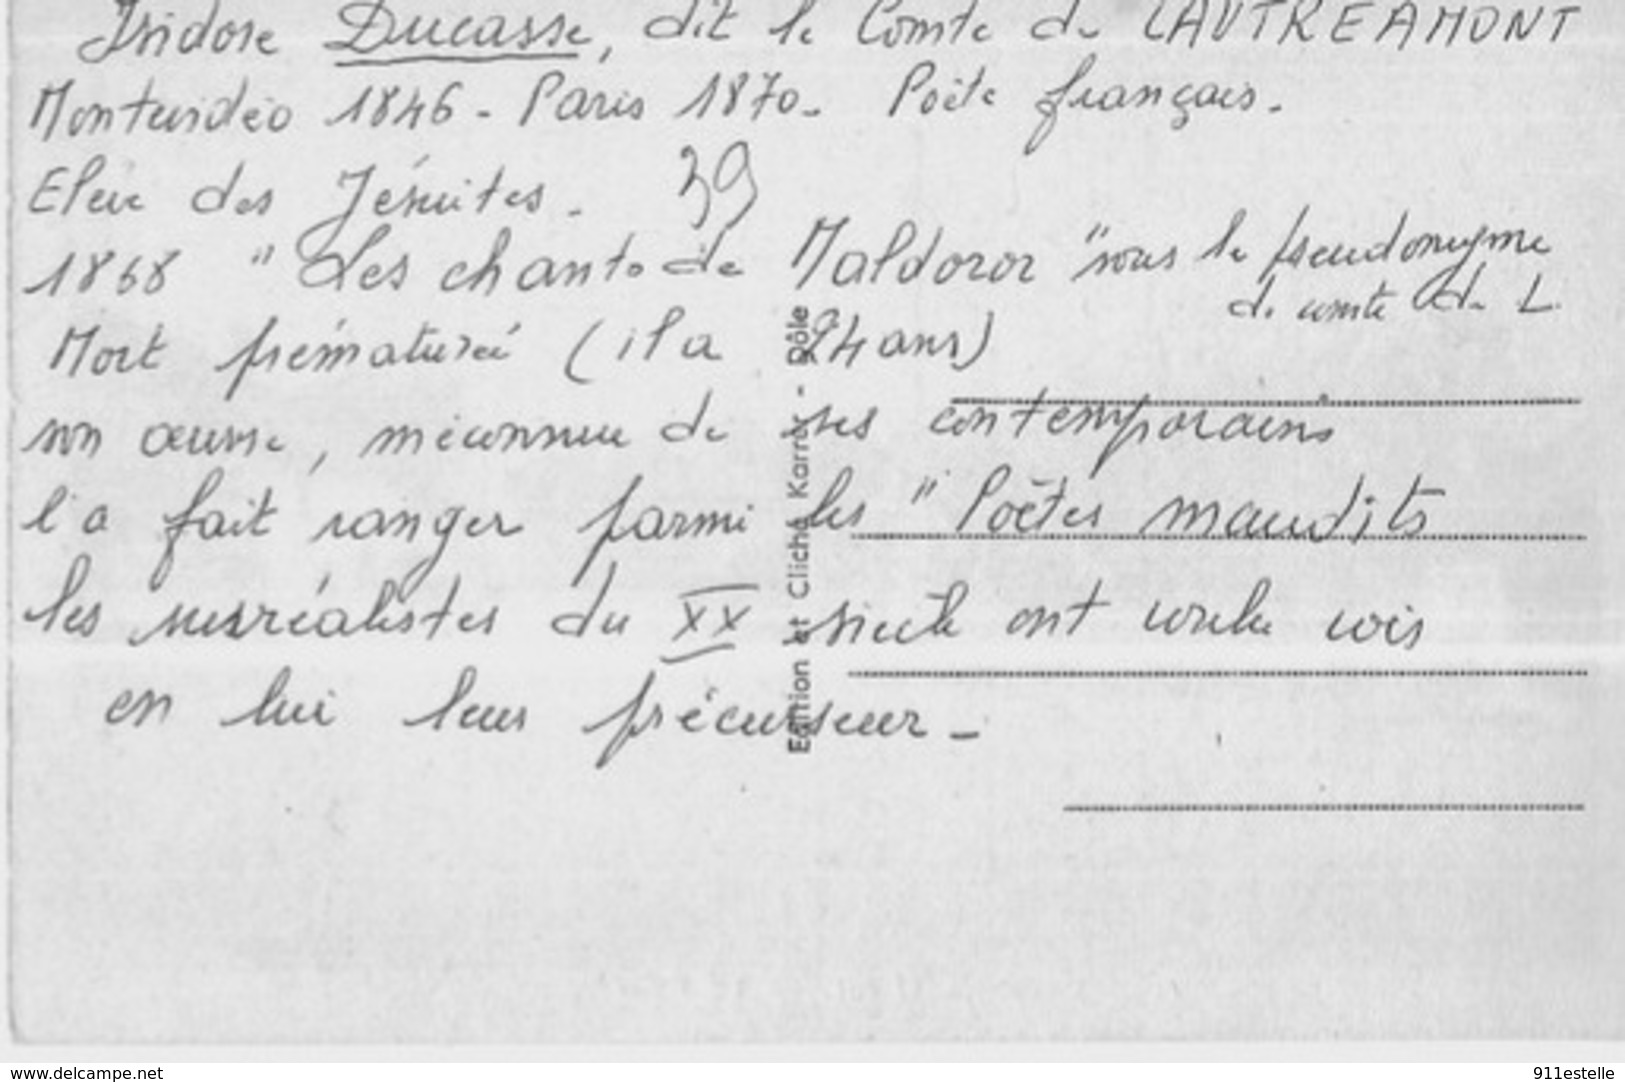 Isidore Ducasse, dit le Comte de LAUTREAMONT
Montevidéo 1846 - Paris 1870. Poëte français.
Eleve des Jésuites. 39
1868 "Les chants de Maldoror" sous le pseudonyme
de comte de L.
Mort prématurée (il a 24 ans)
son œuvre, méconnue de ses contemporains
l'a fait ranger parmi les "Poëtes maudits
les surréalistes du XX siecle ont voulu voir
en lui leur précurseur -
Edition et Cliché Karrer - Dôle
www.delcampe.net
911estelle